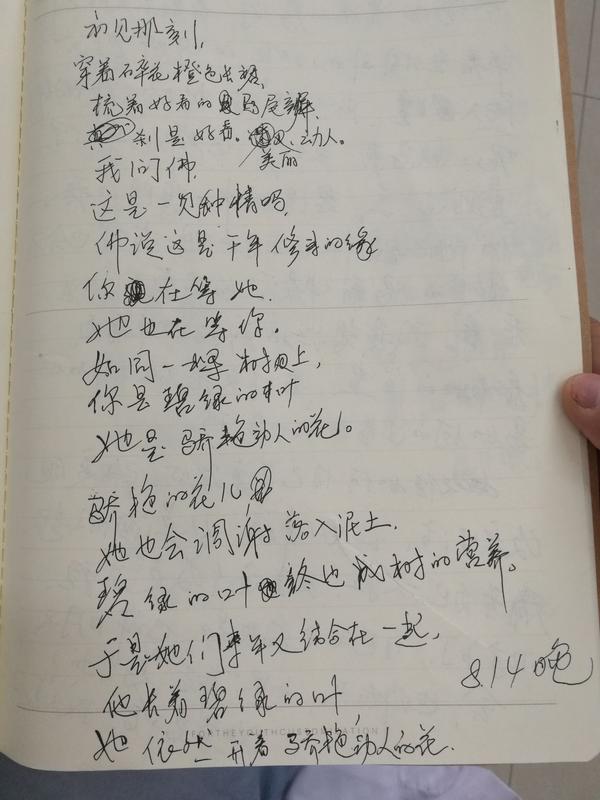 初见那刻,
穿着碎花橙色长裙,
梳着好看的马尾辫,
刹是好看。美丽动人。
我问佛,
这是一见钟情吗,
佛说这是千年修来的缘
你在等她,
她也在等你。
如同一棵树上,
你是碧绿的叶
她是骄艳动人的花。
骄艳的花儿
她也会凋谢落入泥土,
碧绿的叶终也成树的营养。
于是她们来年又结合在一起,
他长着碧绿的叶
她依然开着骄艳动人的花.
8.14晚